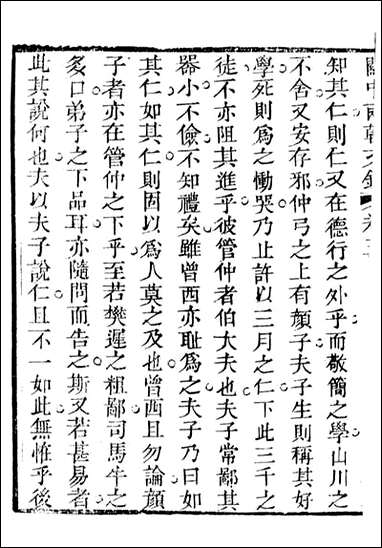 關中兩朝文鈔　卷三
知其仁則仁又在德行之外乎而敬簡之學山川之
不舍又安存邪仲弓之上有顏子夫子生則稱其好
學死則爲之慟哭乃止許以三月之仁下此三千之
徒不亦阻其進乎彼管仲者伯大夫也夫子常鄙其
器小不儉不知禮矣雖曾西亦耻爲之夫子乃曰如
其仁如其仁則固以爲人莫之及也曾西且勿論顏
子者亦在管仲之下乎至若樊遲之粗鄙司馬牛之
多口弟子之下品耳亦隨問而告之斯又若甚易者
此其說何也夫以夫子說仁且不一如此無惟乎後